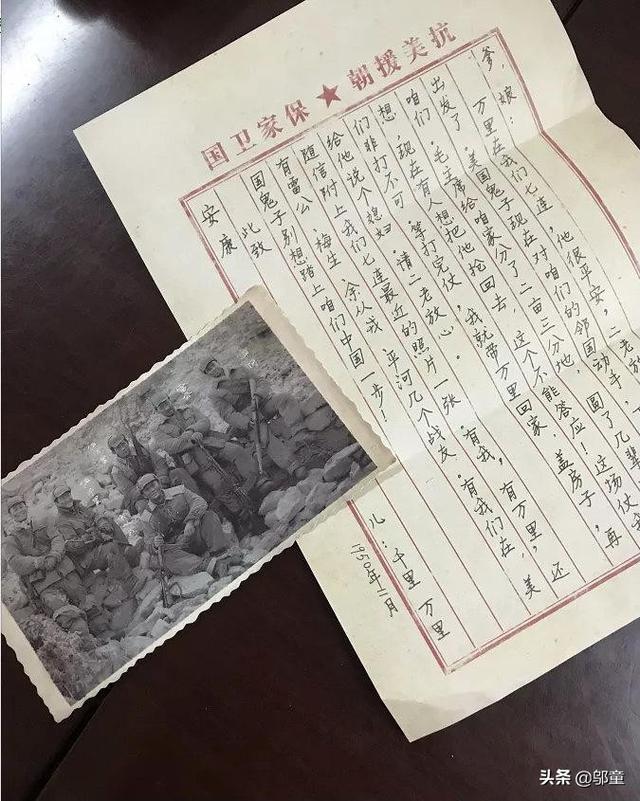 抗美援朝★保家卫国
爹,娘:
万里在我们七连,他很平安,二老放
出发了,美国鬼子现在对咱们的邻国动手,
咱们,毛主席给咱家分了二亩三分地,圆了几辈
想,现在有人想把他抢回去,这个不能答应!这场仗
们非打不可,等打完仗,我就带万里回家,盖房子,再
给他说个媳妇,请二老放心。
随信附上我们七连最近的照片一张,有我,有万里,还
有雷公,梅生,余从戎,平河几个战友,有我们在,美
国鬼子别想踏上咱们中国一步!
此致
安康
儿:千里 万里
1950年11月
头条 @邬童